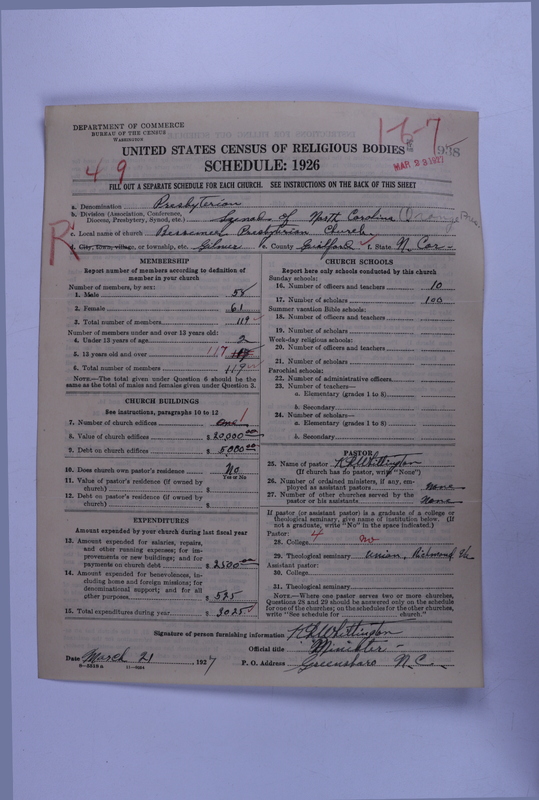 DEPARTMENT OF COMMERCE
BUREAU OF THE CENSUS
WASHINGTON
1-6-7
938
MAR 23 1927
UNITED STATES CENSUS OF RELIGIOUS BODIES
4 9
SCHEDULE: 1926
FILL OUT A SEPARATE SCHEDULE FOR EACH CHURCH. SEE INSTRUCTIONS ON THE BACK OF THIS SHEET
R
a. Denomination Presbyterian
b. Division (Association, Conference, Diocese, Presbytery, Synod, etc.) Synod of North Carolina (Orange Pres.)
c. Local name of church Bessemer Presbyterian Church
d. City, town, village, or township, etc. Gilmer e. County Guilford f. State N. Car.
MEMBERSHIP
Report number of members according to definition of
member in your church
Number of members, by sex:
1. Male 58
2. Female 61
3. Total number of members 119
Number of members under and over 13 years old:
4. Under 13 years of age 2
5. 13 years old and over 117 117
6. Total number of members 119
NOTE.—The total given under Question 6 should be the
same as the total of males and females given under Question 3.
CHURCH BUILDINGS
See instructions, paragraphs 10 to 12
7. Number of church edifices one 1
8. Value of church edifices $ 20,000.00
9. Debt on church edifices $ 5,000.00
10. Does church own pastor's residence No
Yes or No
11. Value of pastor's residence (if owned by
church) $
12. Debt on pastor's residence (if owned by
church) $
EXPENDITURES
Amount expended by your church during last fiscal year
13. Amount expended for salaries, repairs,
and other running expenses; for im-
provements or new buildings; and for
payments on church debt $ 2500.00
14. Amount expended for benevolences, in-
cluding home and foreign missions; for
denominational support; and for all
other purposes $ 525
15. Total expenditures during year $ 3025
CHURCH SCHOOLS
Report here only schools conducted by this church
Sunday schools:
16. Number of officers and teachers 10
17. Number of scholars 100
Summer vacation Bible schools:
18. Number of officers and teachers
19. Number of scholars
Week-day religious schools:
20. Number of officers and teachers
21. Number of scholars
Parochial schools:
22. Number of administrative officers
23. Number of teachers—
a. Elementary (grades 1 to 8)
b. Secondary
24. Number of scholars—
a. Elementary (grades 1 to 8)
b. Secondary
PASTOR
25. Name of pastor R L Whittington
(If church has no pastor, write "None")
26. Number of ordained ministers, if any, em-
ployed as assistant pastors none
27. Number of other churches served by the
pastor or his assistants None
If pastor (or assistant pastor) is a graduate of a college or
theological seminary, give name of institution below. (If
not a graduate, write "No" in the space indicated.)
Pastor: 4
28. College No
29. Theological seminary Union, Richmond Va
Assistant pastor:
30. College
31. Theological seminary
NOTE.—Where one pastor serves two or more churches,
Questions 28 and 29 should be answered only on the schedule
for one of the churches; on the schedules for the other churches,
write "See schedule for church."
Signature of person furnishing information R L Whittington
Official title Minister
Date March 21, 1927 P. O. Address Greensboro N.C.